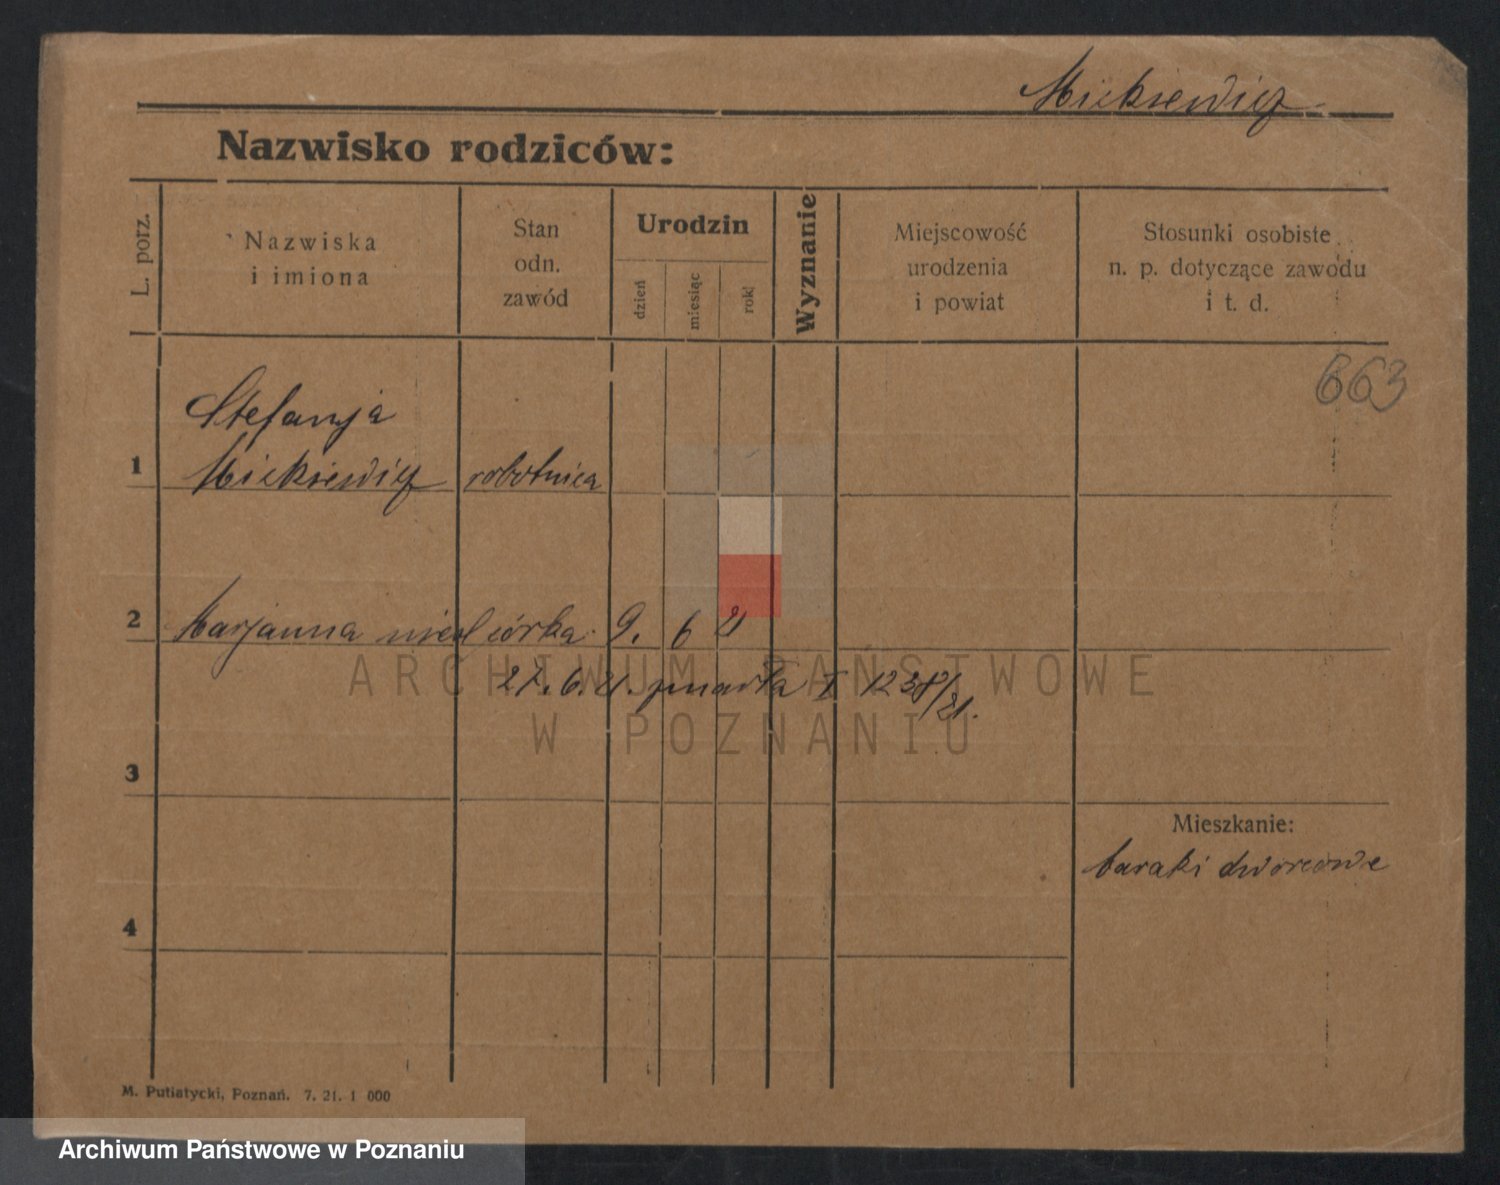 Mickiewicz
Nazwisko rodziców:
L. porz.
Nazwiska
i imiona
Stan
odn.
zawód
Urodzin
dzień
miesiąc
rok
Wyznanie
Miejscowość
urodzenia
i powiat
Stosunki osobiste
n. p. dotyczące zawodu
i t. d.
663
Stefanja
1 Mickiewicz robotnica
2 Marjanna nieśl córka 9. 6 21
27.6.21. zmarła I 1238/21.
3
Mieszkanie:
baraki dworcowe
4
M. Putiatycki, Poznań. 7. 21. 1 000
ARCHIWUM PAŃSTWOWE
W POZNANIU
Archiwum Państwowe w Poznaniu